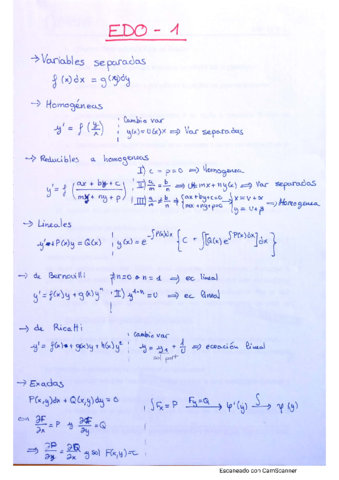 EDO - 1
→ Variables separadas
f(x)dx = g(y)dy
→ Homogéneas
Cambio var
y' = f(y/x) y(x) = u(x)·x ⇒ Var separadas
→ Reducibles a homogeneas
I) c = p = 0 ⇒ Homogenea
y' = f((ax + by + c)/(mx + ny + p))
→ Lineales
y' + P(x)y = Q(x) y(x) = e^{-∫P(x)dx} { C + ∫[Q(x)e^{∫P(x)dx}]dx }
→ de Bernoulli
⇒ ec lineal
y' = f(x)y + g(x)y^n II) y^{1-n} = u ⇒ ec lineal
→ de Ricatti
Cambio var
y' = f(x) + g(x)y + h(x)y² y = y₁ + 1/u ⇒ ecuación lineal
sol part
→ Exactas
P(x,y)dx + Q(x,y)dy = 0 ∫Fx = P Fy=Q → φ'(y) ∫→ φ(y)
con ∂F/∂x = P y ∂F/∂y = Q
⇒ ∂P/∂y = ∂Q/∂x y sol F(x,y)=c
Escaneado con CamScanner